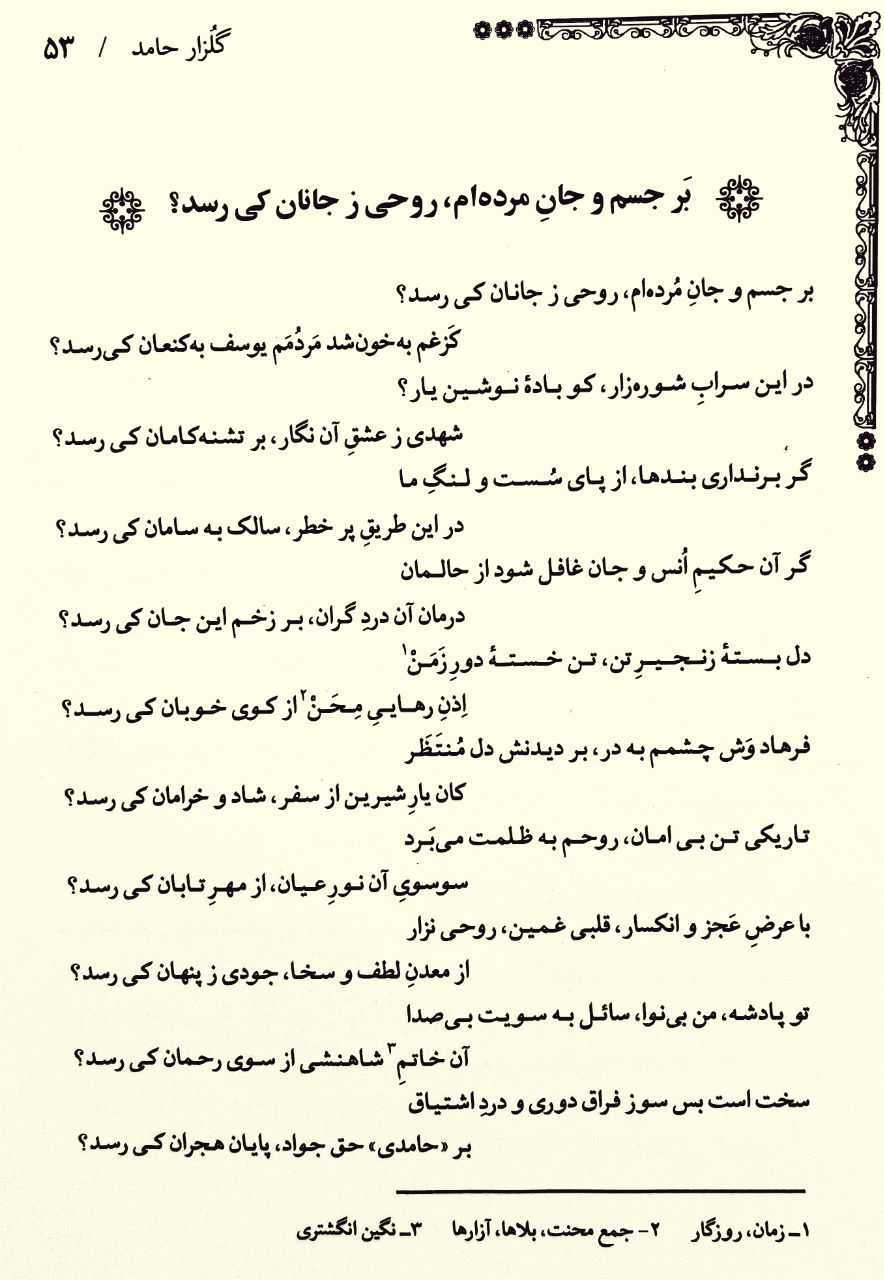 گُلزار حامد / ۵۳
بَر جسم و جانِ مرده‌ام، روحی ز جانان کی رسد؟
بر جسم و جانِ مُرده‌ام، روحی ز جانان کی رسد؟
کَزغم به‌خون‌شد مَردُمَم یوسف به‌کنعان کی‌رسد؟
در این سرابِ شوره‌زار، کو بادهٔ نوشین یار؟
شهدی ز عشقِ آن نگار، بر تشنه‌کامان کی رسد؟
گر برنداری بندها، از پای سُست و لنگِ ما
در این طریقِ پر خطر، سالک به سامان کی رسد؟
گر آن حکیمِ اُنس و جان غافل شود از حالمان
درمان آن دردِ گران، بر زخم این جان کی رسد؟
دل بستهٔ زنجیرِ تن، تن خستهٔ دورِ زَمَنْ۱
اِذنِ رهاییِ مِحَنْ۲ از کوی خوبان کی رسد؟
فرهاد وَش چشمم به در، بر دیدنش دل مُنتَظَر
کان یارِ شیرین از سفر، شاد و خرامان کی رسد؟
تاریکی تن بی امان، روحم به ظلمت می‌بَرد
سوسویِ آن نورِ عیان، از مهرِ تابان کی رسد؟
با عرضِ عَجز و انکسار، قلبی غمین، روحی نزار
از معدنِ لطف و سخا، جودی ز پنهان کی رسد؟
تو پادشه، من بی‌نوا، سائل به سویت بی‌صدا
آن خاتمِ۳ شاهنشی از سوی رحمان کی رسد؟
سخت است بس سوز فراق دوری و دردِ اشتیاق
بر «حامدی» حق جواد، پایان هجران کی رسد؟
۱ـ زمان، روزگار ۲- جمع محنت، بلاها، آزارها ۳ـ نگین انگشتری